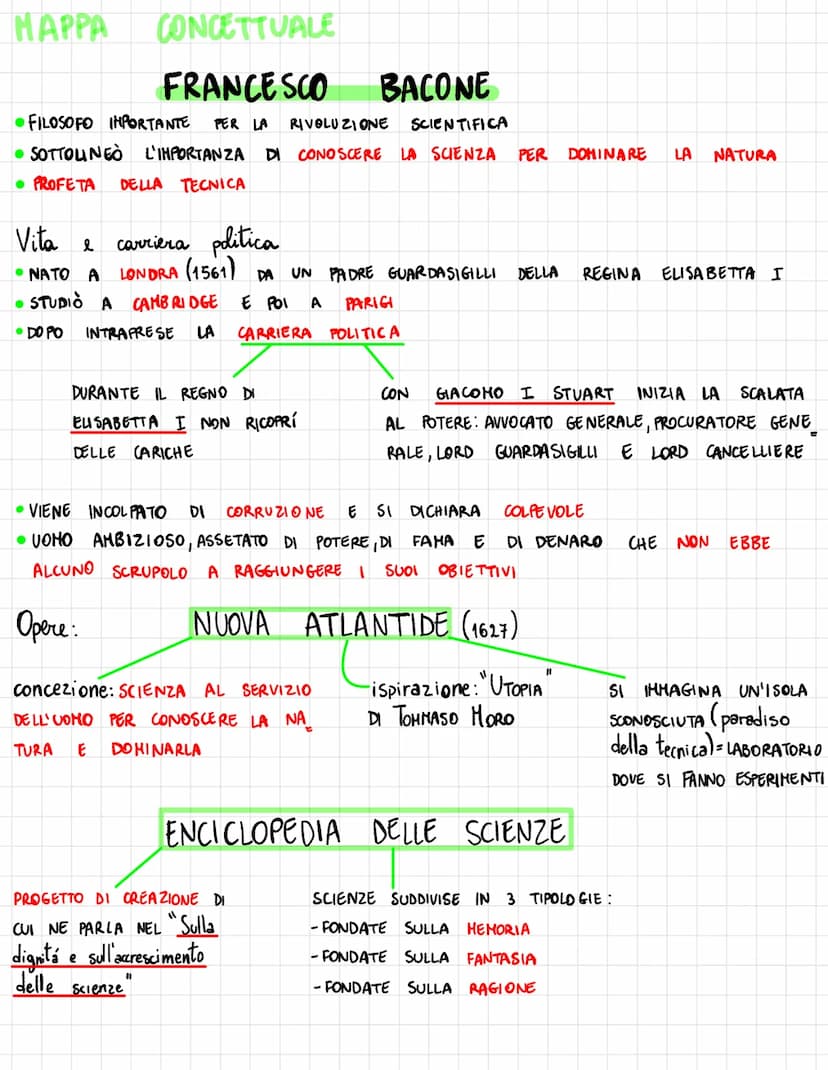 MAPPA CONCETTUALE
FRANCESCO BACONE
• FILOSOFO IMPORTANTE PER LA RIVOLUZIONE SCIENTIFICA
• SOTTOLINEÒ L'IMPORTANZA DI CONOSCERE LA SCIENZA PER DOMINARE LA NATURA
• PROFETA DELLA TECNICA
Vita e carriera politica
• NATO A LONDRA (1561) DA UN PADRE GUARDASIGILLI DELLA REGINA ELISABETTA I
• STUDIÒ A CAMBRIDGE E POI A PARIGI
• DOPO INTRAPRESE LA CARRIERA POLITICA
DURANTE IL REGNO DI
ELISABETTA I NON RICOPRÍ
DELLE CARICHE
CON GIACOMO I STUART INIZIA LA SCALATA
AL POTERE: AVVOCATO GENERALE, PROCURATORE GENE_
RALE, LORD GUARDASIGILLI E LORD CANCELLIERE
• VIENE INCOLPATO DI CORRUZIONE E SI DICHIARA COLPEVOLE
• UOMO AMBIZIOSO, ASSETATO DI POTERE, DI FAMA E DI DENARO CHE NON EBBE
ALCUNO SCRUPOLO A RAGGIUNGERE I SUOI OBIETTIVI
Opere: NUOVA ATLANTIDE (1627)
concezione: SCIENZA AL SERVIZIO
DELL'UOMO PER CONOSCERE LA NA_
TURA E DOMINARLA
ispirazione: "UTOPIA"
DI TOMMASO MORO
SI IMMAGINA UN'ISOLA
SCONOSCIUTA (paradiso
della tecnica) = LABORATORIO
DOVE SI FANNO ESPERIMENTI
ENCICLOPEDIA DELLE SCIENZE
PROGETTO DI CREAZIONE DI
CUI NE PARLA NEL "Sulla
dignitá e sull'accrescimento
delle scienze"
SCIENZE SUDDIVISE IN 3 TIPOLOGIE:
- FONDATE SULLA MEMORIA
- FONDATE SULLA FANTASIA
- FONDATE SULLA RAGIONE